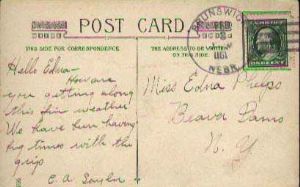 POST CARD
BRUNSWICK
FEB
NEBR.
THIS SIDE FOR CORRESPONDENCE.
THE ADDRESS TO BE WRITTEN
ON THIS SIDE.
Hello Edna-
How are
you getting along
this fine weather
We have been having
big times with
the grip.
C. A. Saylor
Miss Edna Phelps
Beaver Dams
N. Y